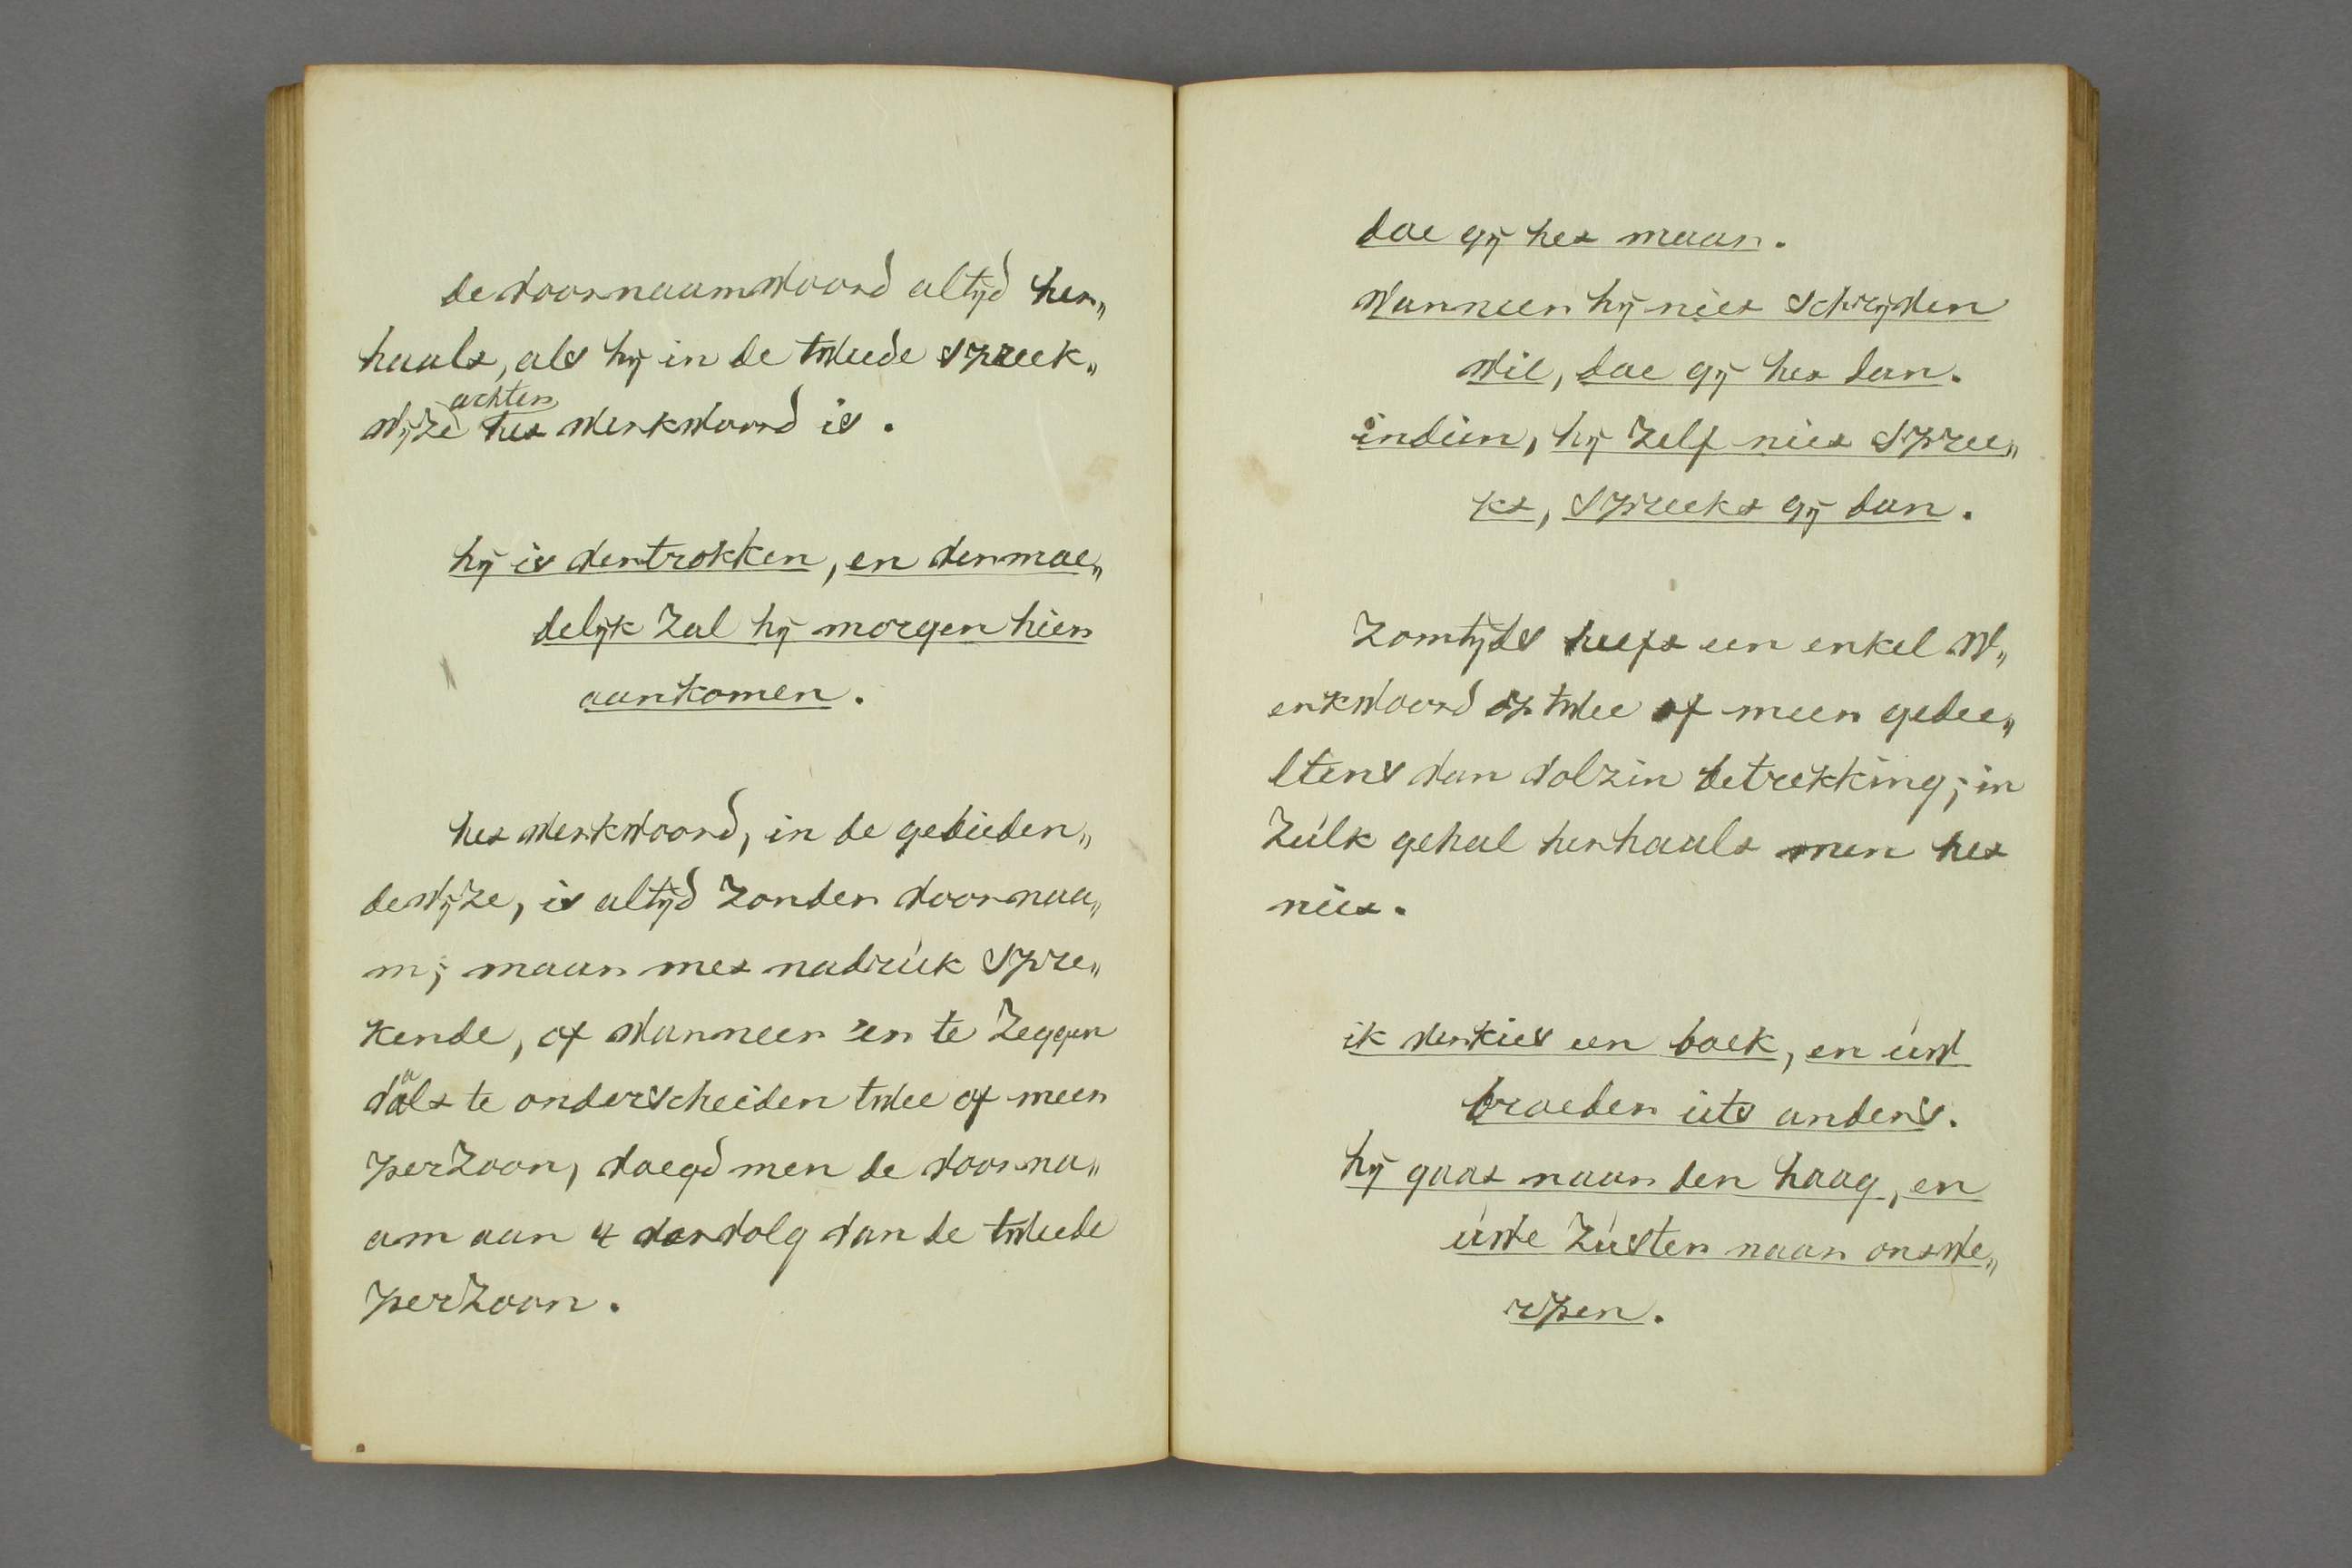 de voornaamwoord altyd her„
haalt, als hÿ in de tweede spreek„
achter
wÿze het werkwoord is.
hÿ is vertrokken, en vermoe„
delÿk zal hÿ morgen hier
aankomen.
het werkwoord, in de gebieden„
de wÿze, is altÿd zonder voornaa„
m; maar met nadrúk spre„
kende, of wanneer 'er te zeggen
valt te onderscheiden twee of meer
perzoon, voegd men de voorna„
am aan 't vervolg van de tweede
perzoon.
doe gÿ het maar.
Wanneer hÿ niet schrÿven
wil, doe gÿ het dan.
indien, hÿ zelf niet spree„
kt, spreekt gÿ dan.
Zomtÿds heeft een enkel w„
erkwoord op twee of meer gedee„
ltens van volzin betrekking; in
zúlk geval herhaalt men het
niet.
ik verkies een boek, en úw
broeder iets anders.
hÿ gaat naar den haag, en
úwe zúster naar antwe„
rpen.